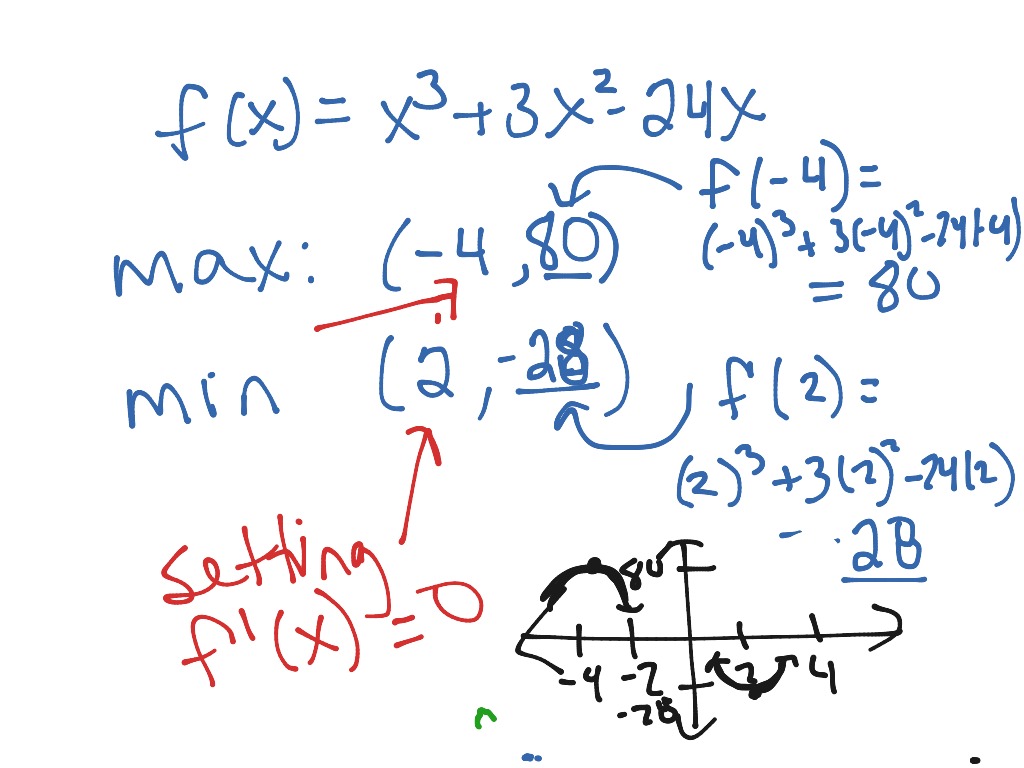 f(x) = x³ + 3x² - 24x
f(-4) =
(-4)³ + 3(-4)² - 24(-4)
= 80
max: (-4, 80)
min (2, -28)
f(2) =
(2)³ + 3(2)² - 24(2)
= -28
setting
f'(x) = 0
80
-4 -2 2 4
-28